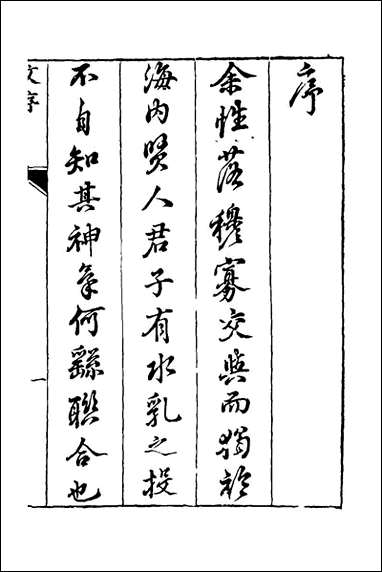 序
余性落穆寡交與而獨於
海内賢人君子有水乳之投
不自知其神氣何繇聯合也
文序
一